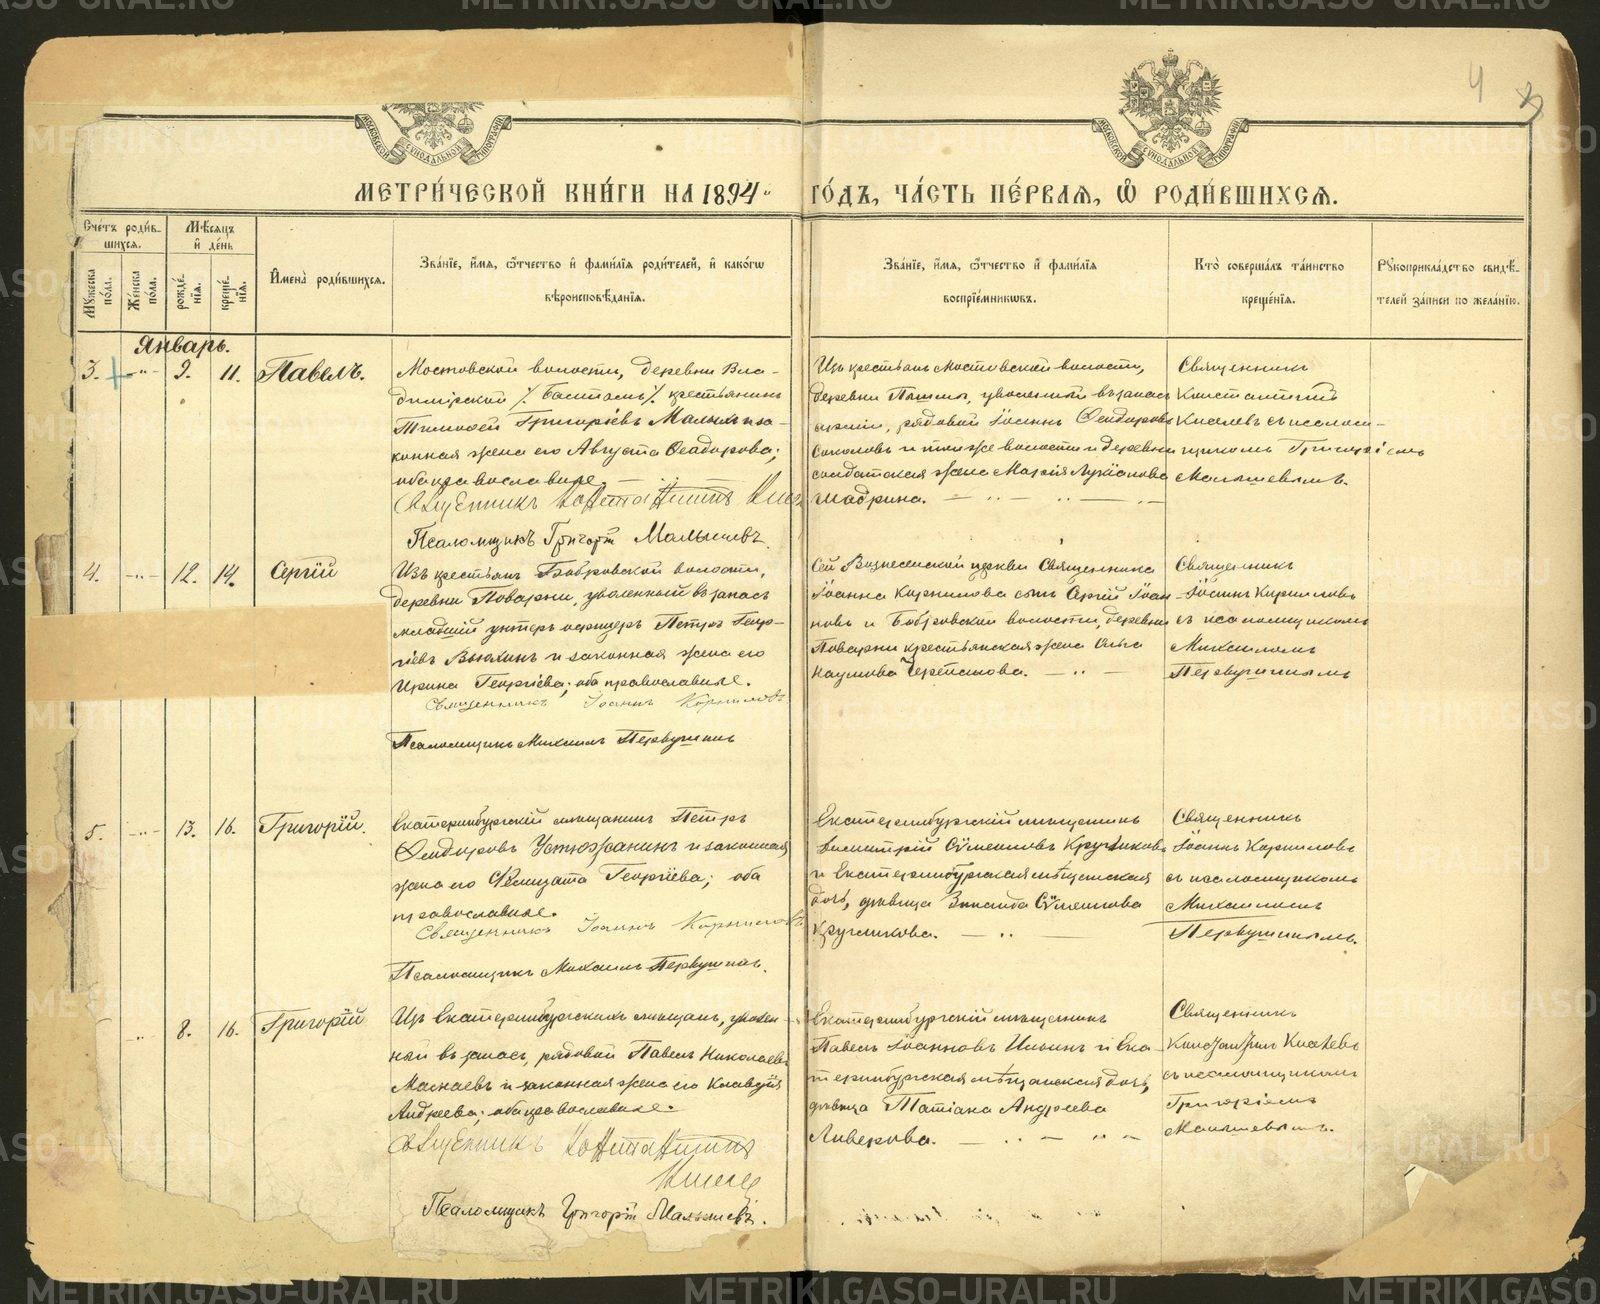 МЕТРИ́ЧЕСКОЙ КНИ́ГИ НА 1894 ГО́ДЪ, ЧА́СТЬ ПЕ́РВАЯ, Ѡ РОДИ́ВШИХСЯ.
МОСКОВСКОЙ СѴНОДАЛЬНОЙ ТИПОГРАФІИ
МОСКОВСКОЙ СѴНОДАЛЬНОЙ ТИПОГРАФІИ
4
Сче́тъ роди́в-
шихся.
Мꙋ́жеска по́ла.
Же́нска по́ла.
Мѣ́сяцъ
и҆ де́нь
рожде́-
нїя.
креще́-
нїя.
И҆мена̀ роди́вшихся.
Зва́нїе, и҆́мя, ѻ҆́тчество и҆ фами́лїя роди́телей, и҆ како́гѡ
вѣроисповѣ́данїя.
Зва́нїе, и҆́мя, ѻ҆́тчество и҆ фами́лїя
воспрїе́мникѡвъ.
Кто̀ соверша́лъ та́инство
креще́нїя.
Рꙋкоприкла́дство свидѣ́-
телей за́писи по жела́нїю.
Январь.
3. -"- 9. 11. Павелъ.
Мостовской волости, деревни Вла-
димірской /. Басмасъ /. крестьянинъ
Тимофей Григоріевъ Малыхъ и за-
конная жена его Августа Ѳеодорова;
оба православные.
Священникъ Константинъ
Псаломщикъ Григорій Малышевъ.
Изъ крестьянъ Мостовской волости,
деревни уволенный въ запасъ
арміи, рядовой Іоаннъ Ѳеодоровъ
Соколовъ и той же волости и деревни
солдатская жена Марія Лукіанова
Шадрина.
Священникъ
Константинъ
Киселевъ съ псалом-
щикомъ Григоріемъ
Малышевымъ.
4. -"- 12. 14. Сергій
Изъ крестьянъ Бобровской волости,
деревни Поварни, уволенный въ запасъ
младшій унтеръ офицеръ Петръ Геор-
гіевъ Вьюхинъ и законная жена его
Ирина Георгіева; оба православные.
Священникъ Іоаннъ Корниловъ
Псаломщикъ Михаилъ Первушинъ
Сей Вознесенской церкви Священника
Іоанна Корнилова сынъ Сергій Іоан-
новъ и Бобровской волости, деревни
Поварни крестьянская жена Ольга
Наумова Черепанова.
Священникъ
Іоаннъ Корниловъ
съ псаломщикомъ
Михаиломъ
Первушинымъ
5. -"- 13. 16. Григорій.
Екатеринбургскій мѣщанинъ Петръ
Ѳеодоровъ Устюжанинъ и законная
жена его Фелицата Георгіева; оба
православные.
Священникъ Іоаннъ Корниловъ
Псаломщикъ Михаилъ Первушинъ.
Екатеринбургскій мѣщанинъ
Димитрій Сѷмеоновъ Кругликовъ
и Екатеринбургская мѣщанская
дочь, дѣвица Зинаида Сѷмеонова
Кругликова.
Священникъ
Іоаннъ Корниловъ
съ псаломщикомъ
Михаиломъ
Первушинымъ.
-"- 8. 16. Григорій
Изъ Екатеринбургскихъ мѣщанъ, уволен-
ный въ запасъ, рядовой Павелъ Николаевъ
и законная жена его Клавдія
Андреева; оба православные.
Священникъ Константинъ
Киселе
Псаломщикъ Григорій Малышевъ.
Екатеринбургскій мѣщанинъ
Павелъ Іоанновъ Ильинъ и Ека-
теринбургская мѣщанская дочь,
дѣвица Татіана Андреева
Ливерова.
Священникъ
Константинъ Киселевъ
съ псаломщикомъ
Григоріемъ
Малышевымъ.
METRIKI.GASO-URAL.RU